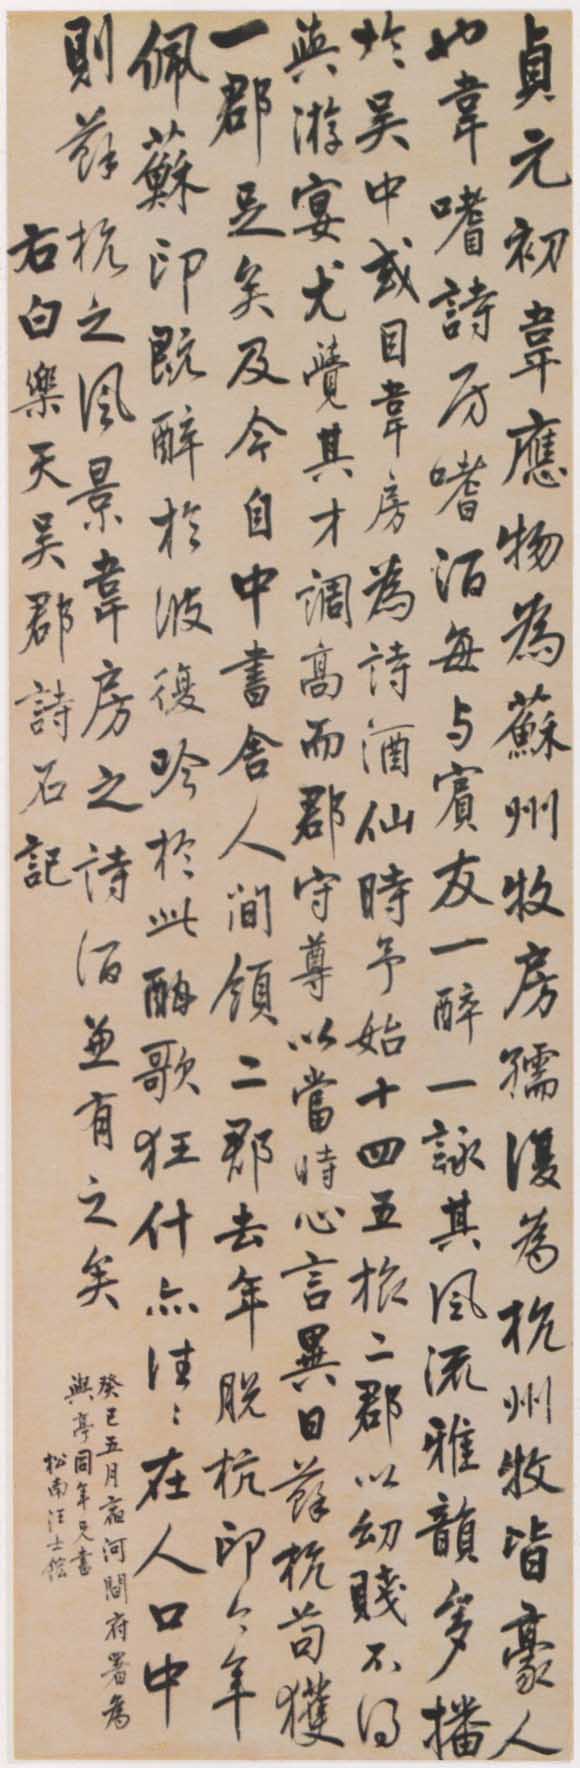 貞元初韋應物為蘇州牧房孺復為杭州牧皆豪人
也韋嗜詩房嗜酒每与賓友一醉一詠其風流雅韻多播
於吳中或目韋房為詩酒仙時予始十四五旅二郡以幼賤不得
與游宴尤覺其才調高而郡守尊以當時心言異日蘇杭苟獲
一郡足矣及今自中書舍人間領二郡去年脫杭印今年
佩蘇印既醉於彼復吟於此酣歌狂什亦往〻在人口中
則蘇杭之風景韋房之詩酒兼有之矣
右白樂天吳郡詩石記
癸巳五月寓河間府署為
與亭同年兄書
松南汪士鋐